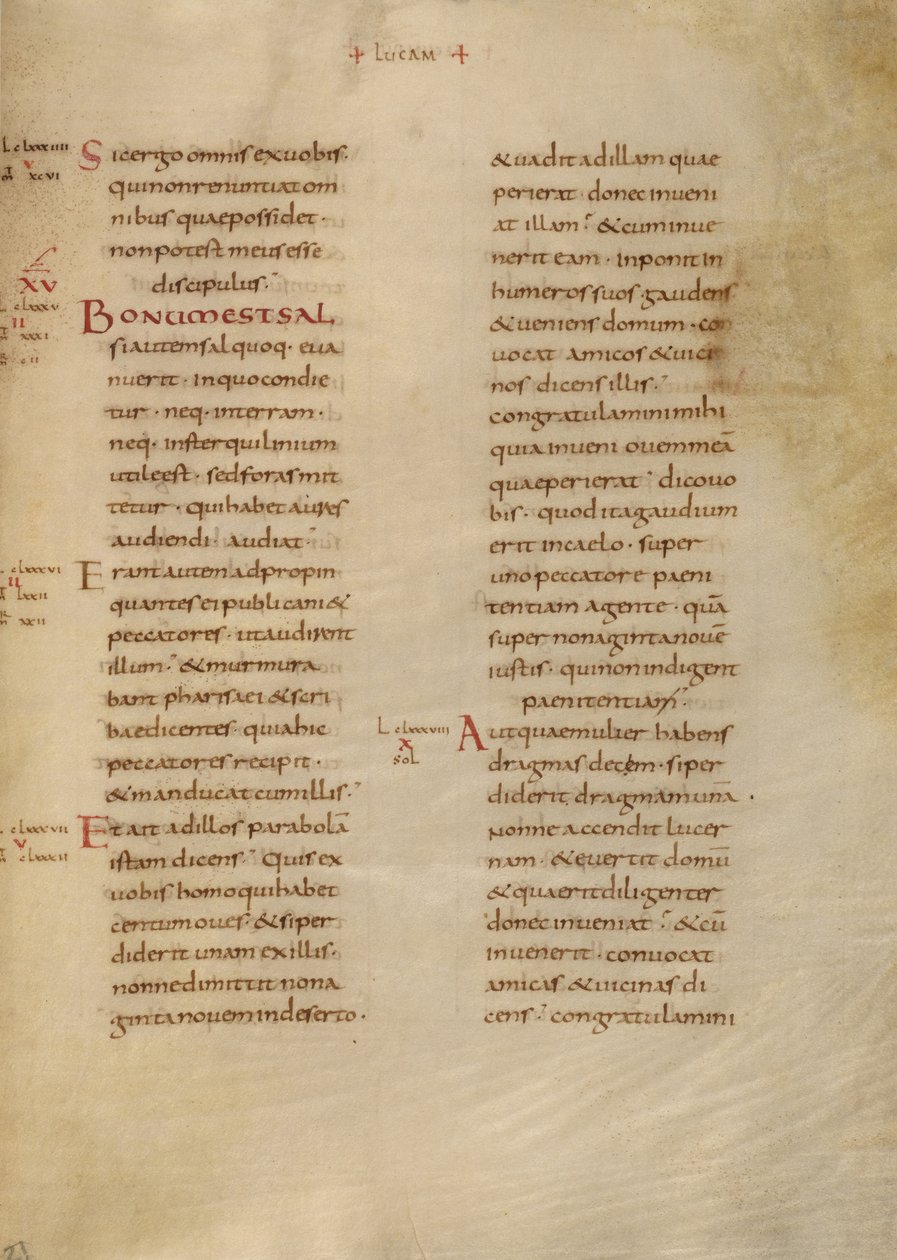 + LUCAM +
L clxxxiiii
v
m xcvi
Sic ergo omnis ex vobis·
qui non renuntiat om
nibus quae possidet·
non potest meus esse
discipulus·
XV
clxxxv
II
xxxi
cii
BONUM EST SAL
si autem sal quoq· eva
nuerit· in quo condie
tur· neq· in terram·
neq· in sterquilinium
utile est· sed foras mit
tetur· qui habet aures
audiendi· audiat·
clxxxvi
II
lxxii
xxii
Erant autem adpropin
quantes ei publicani &
peccatores· ut audirent
illum· & murmura
bant pharisaei & scri
bae dicentes· quia hic
peccatores recipit·
& manducat cum illis·
clxxxvii
v
clxxxii
Et ait ad illos parabolā
istam dicens· Quis ex
vobis homo qui habet
centum oves· & si per
diderit unam ex illis·
nonne dimittit nona
ginta novem in deserto·
& vadit ad illam quae
perierat· donec inveni
at illam· & cum inve
nerit eam· inponit in
humeros suos· gaudens
& veniens domum· con
vocat amicos & vici
nos dicens illis·
congratulamini mihi
quia inveni ovem meā
quae perierat· dico vo
bis· quod ita gaudium
erit in caelo· super
uno peccatore paeni
tentiam agente· quā
super nonaginta novē
iustis· qui non indigent
paenitentiam·
L clxxxviii
x
sol
Aut quae mulier habens
dragmas decem· si per
diderit dragmam unā·
nonne accendit lucer
nam· & evertit domū
& quaerit diligenter
donec inveniat· & cū
invenerit· convocat
amicas & vicinas di
cens· congratulamini